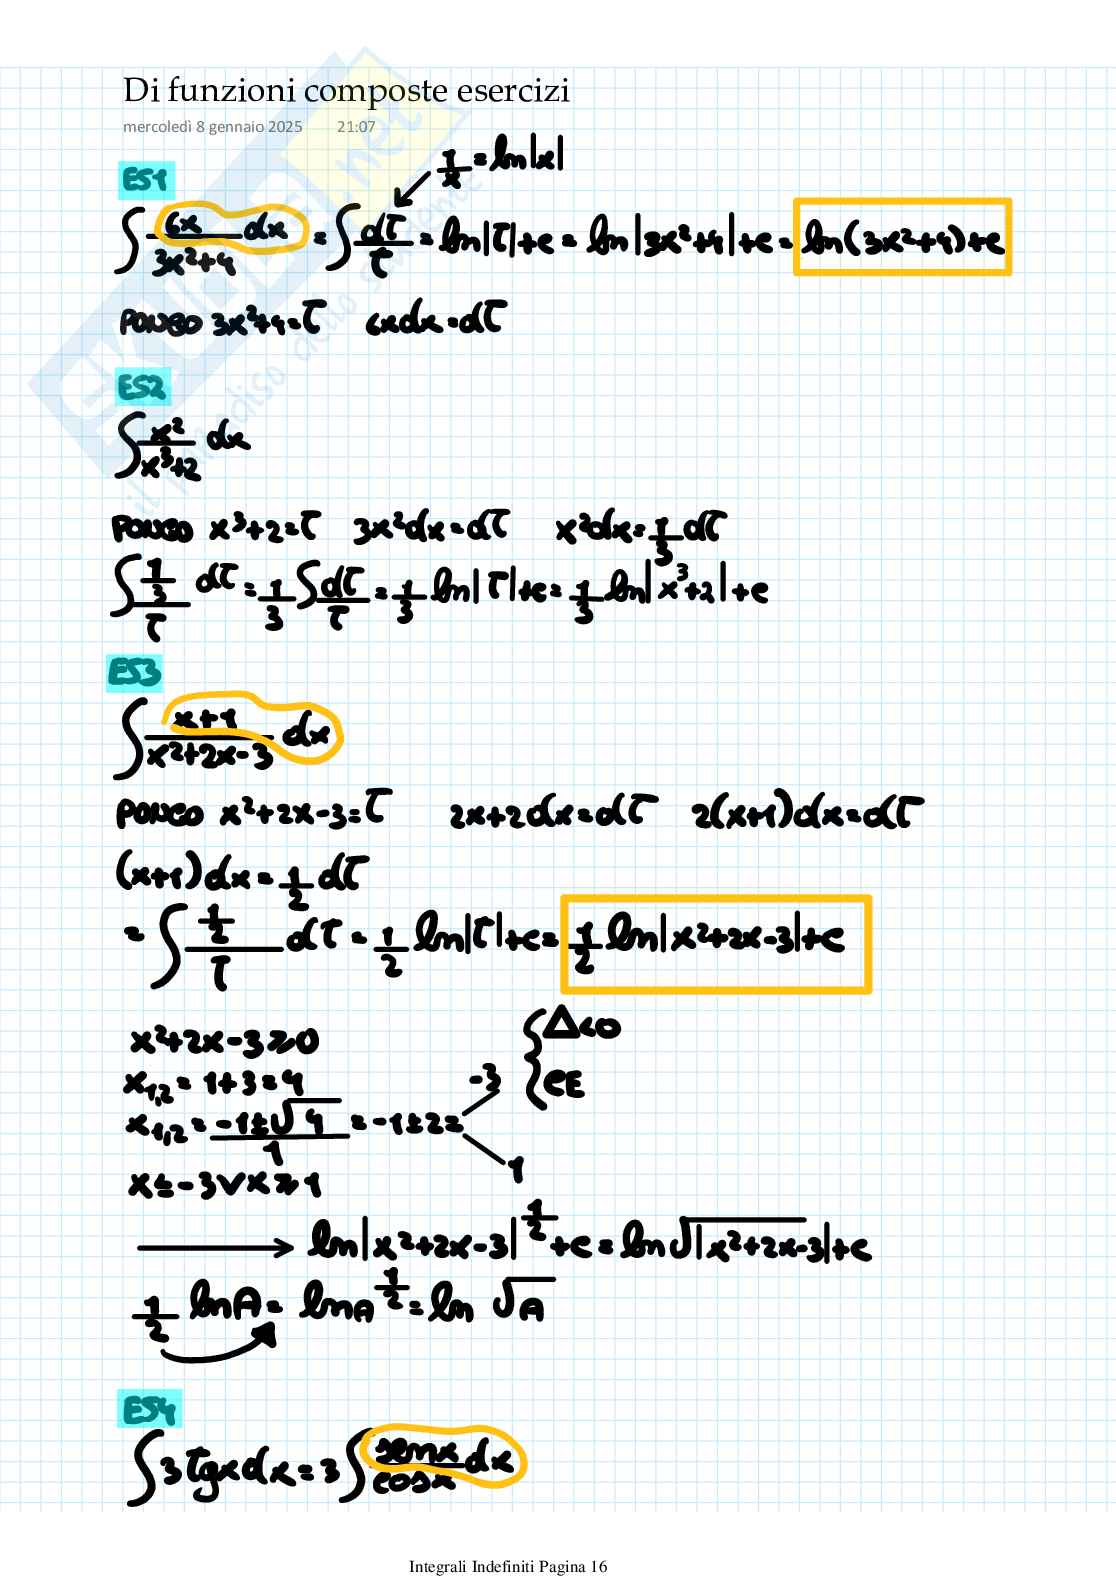 Di funzioni composte esercizi
mercoledì 8 gennaio 2025 21:07
1/x = ln|x|
ES1
∫ 6x/(3x²+4) dx = ∫ dτ/τ = ln|τ|+c = ln|3x²+4|+c = ln(3x²+4)+c
PONGO 3x²+4=τ 6xdx=dτ
ES2
∫ x²/(x³+2) dx
PONGO x³+2=τ 3x²dx=dτ x²dx=1/3 dτ
∫ (1/3)/τ dτ = 1/3 ∫ dτ/τ = 1/3 ln|τ|+c = 1/3 ln|x³+2|+c
ES3
∫ (x+1)/(x²+2x-3) dx
PONGO x²+2x-3=τ 2x+2dx=dτ 2(x+1)dx=dτ
(x+1)dx=1/2 dτ
= ∫ (1/2)/τ dτ = 1/2 ln|τ|+c = 1/2 ln|x²+2x-3|+c
x²+2x-3≥0 { Δ<0
x₁,₂ = 1+3=4 CE
x₁,₂ = (-1±√4)/1 = -1±2= -3 1
x≤-3 ∨ x≥1
→ ln|x²+2x-3|^(1/2)+c = ln√|x²+2x-3|+c
1/2 lnA = lnA^(1/2) = ln √A
ES4
∫ 3tgxdx = 3∫ senx/cosx dx
Integrali Indefiniti Pagina 16
SKUOLA.net
il paradiso dello studente